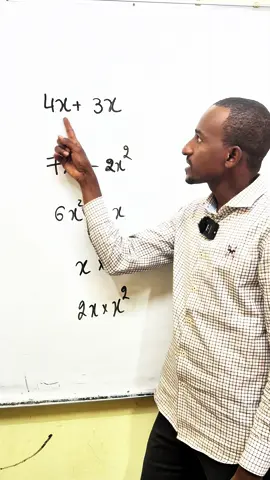 4x + 3x
2x²
6x² x
x ×
2x × x²